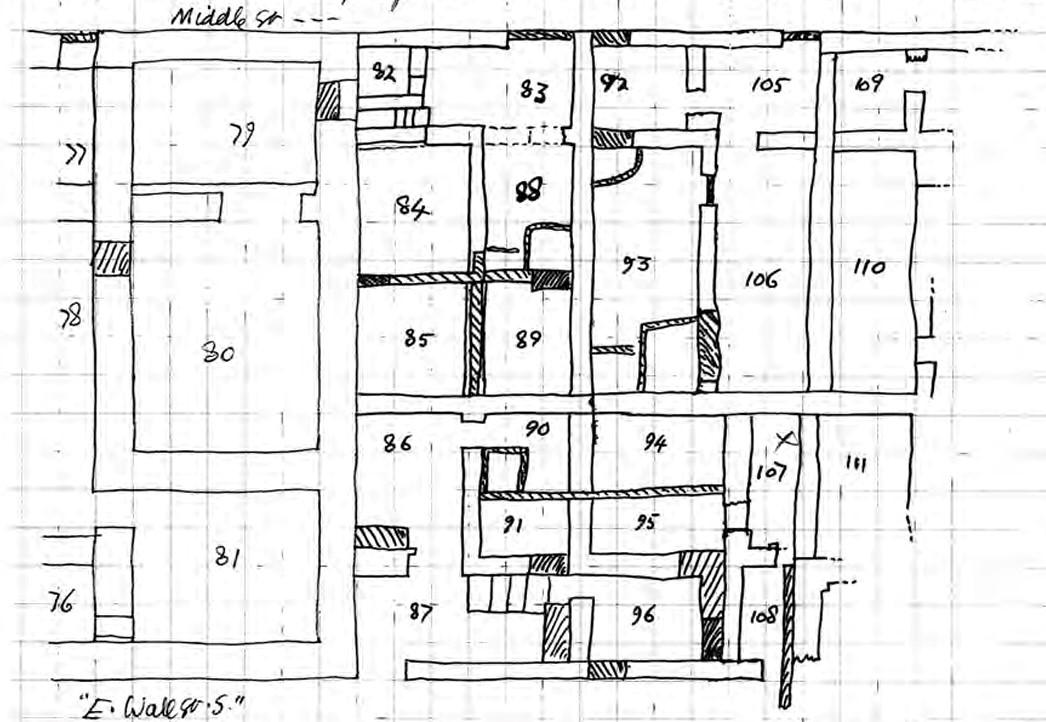 Middle St ---
82
83
92
105
109
77
79
84
88
93
106
110
78
80
85
89
86
90
94
X
107
111
91
95
76
81
87
96
108
"E. Wall St. S."